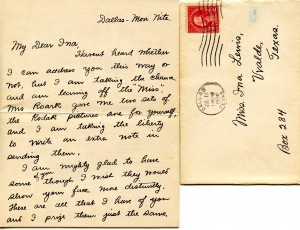 Dallas - Mon Nite.
My Dear Ina,
Havent heard whether
I can address you this way or
not, but I am taking the chance
and am leaving off the "Miss".
Mrs Roark gave me two sets of
the Kodak pictures are for yourself,
and I am taking the liberty
to write an extra note in
sending them.
I am mighty glad to have
some of you though I wish they would
show your face more distinctly.
These are all that I have of you
and I prize them just the same,
Miss Ina Lewis,
Uvalde,
Texas.
Box 284